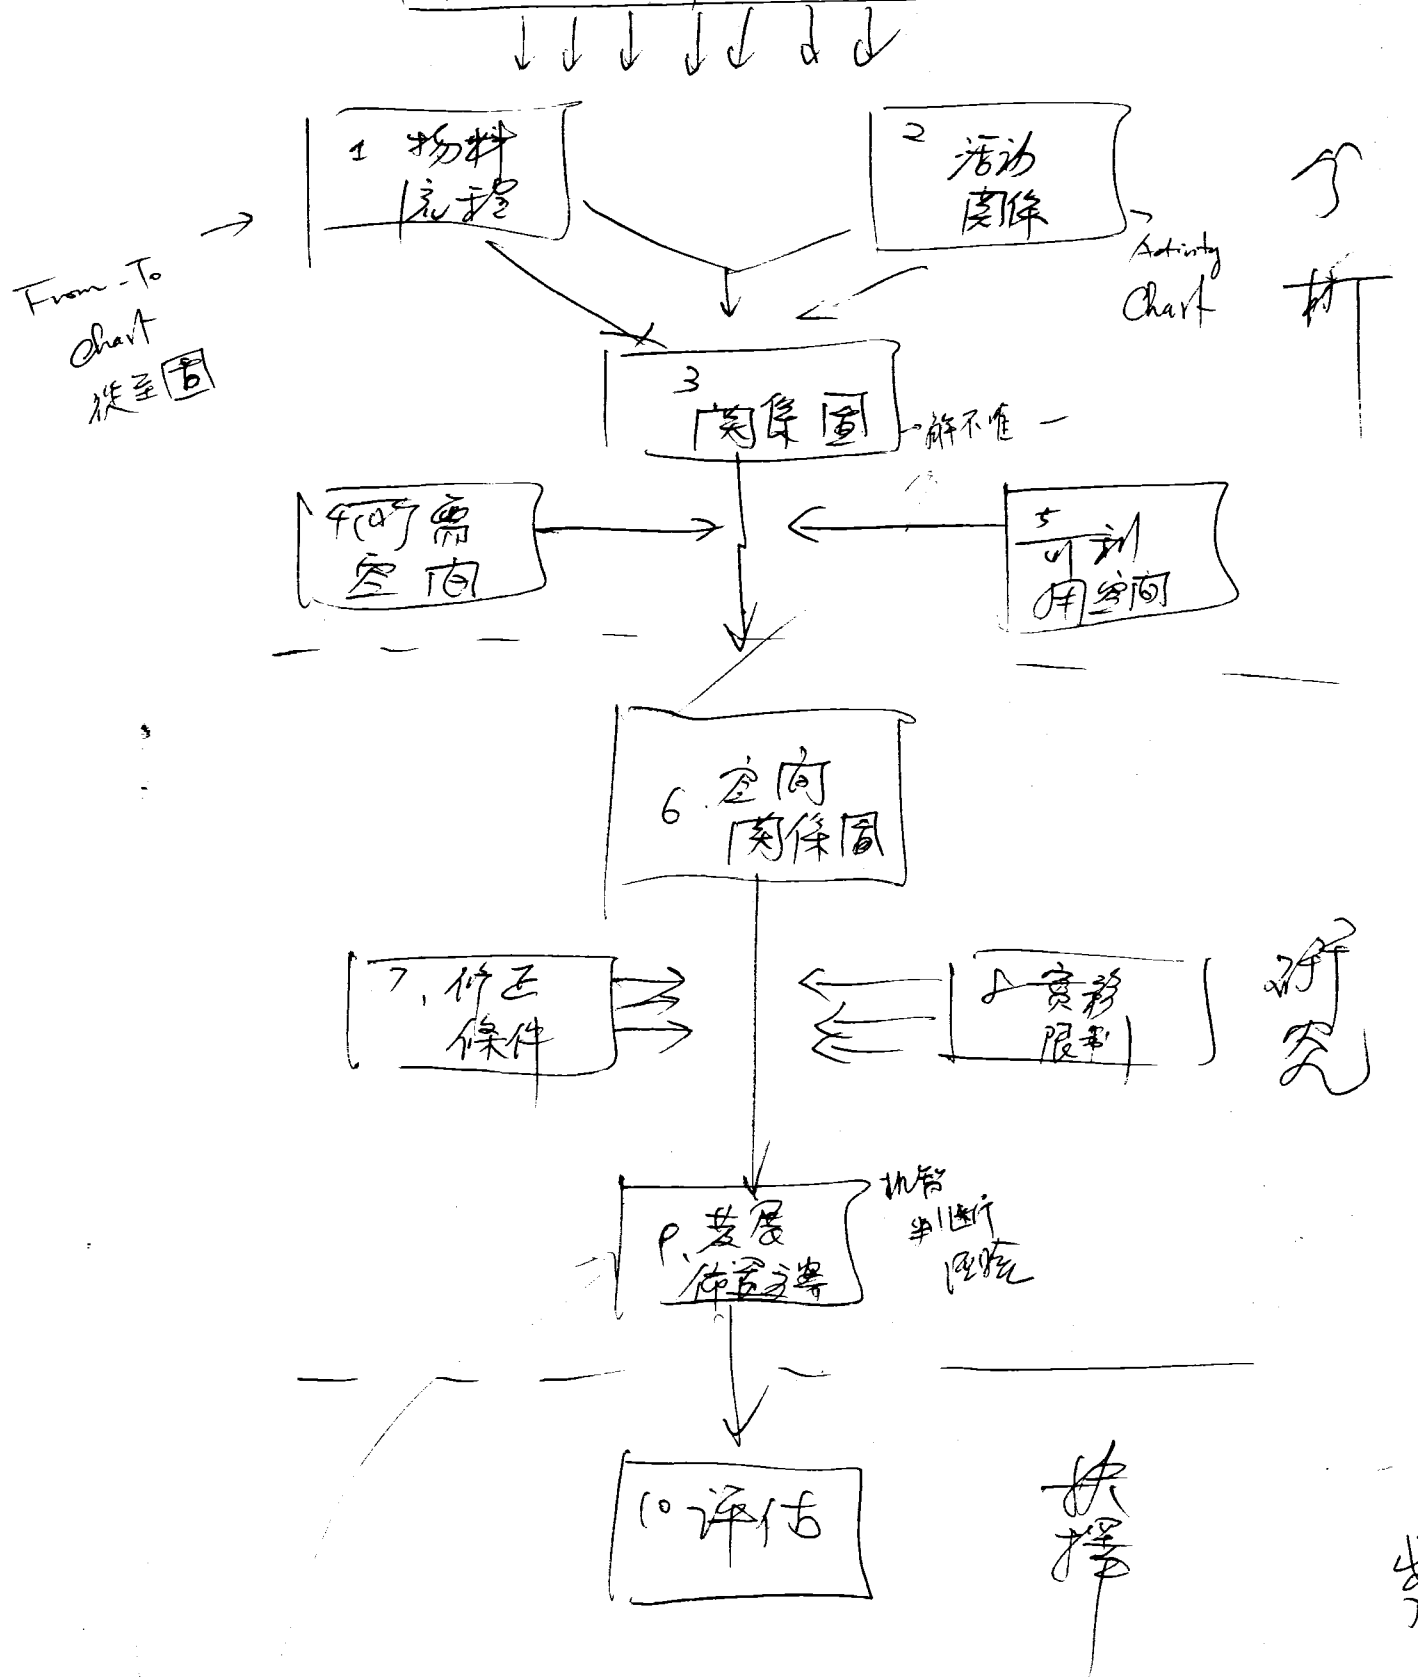 1 物料
流程
2 活动
関係
From-To
Chart
從至圖
Activity
Chart
3
関係圖
解不唯一
4 所需
空间
5
可利
用空间
6. 空间
関係圖
7. 修正
條件
8 實務
限制
研
究
9. 发展
佈置方案
10 评估
抉
擇